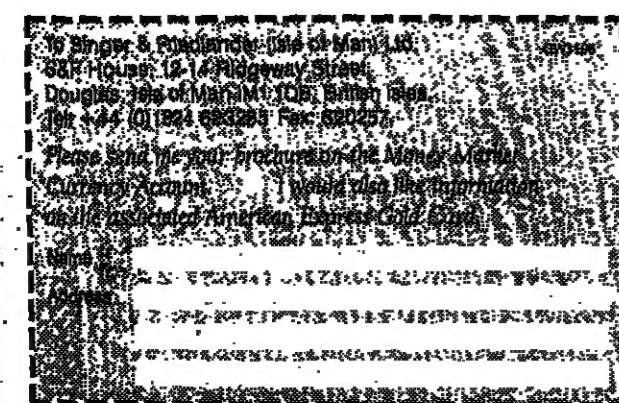 To Singer & Friedlander (Isle of Man) Ltd.
S&F House, 12-14 Ridgeway Street,
Douglas, Isle of Man IM1 1QB, British Isles.
Tel: +44 (0)1624 623235 Fax: 620257
Please send me your brochure on the Money Market
Currency Account. I would also like information
on the associated American Express Gold Card.
Name
Address